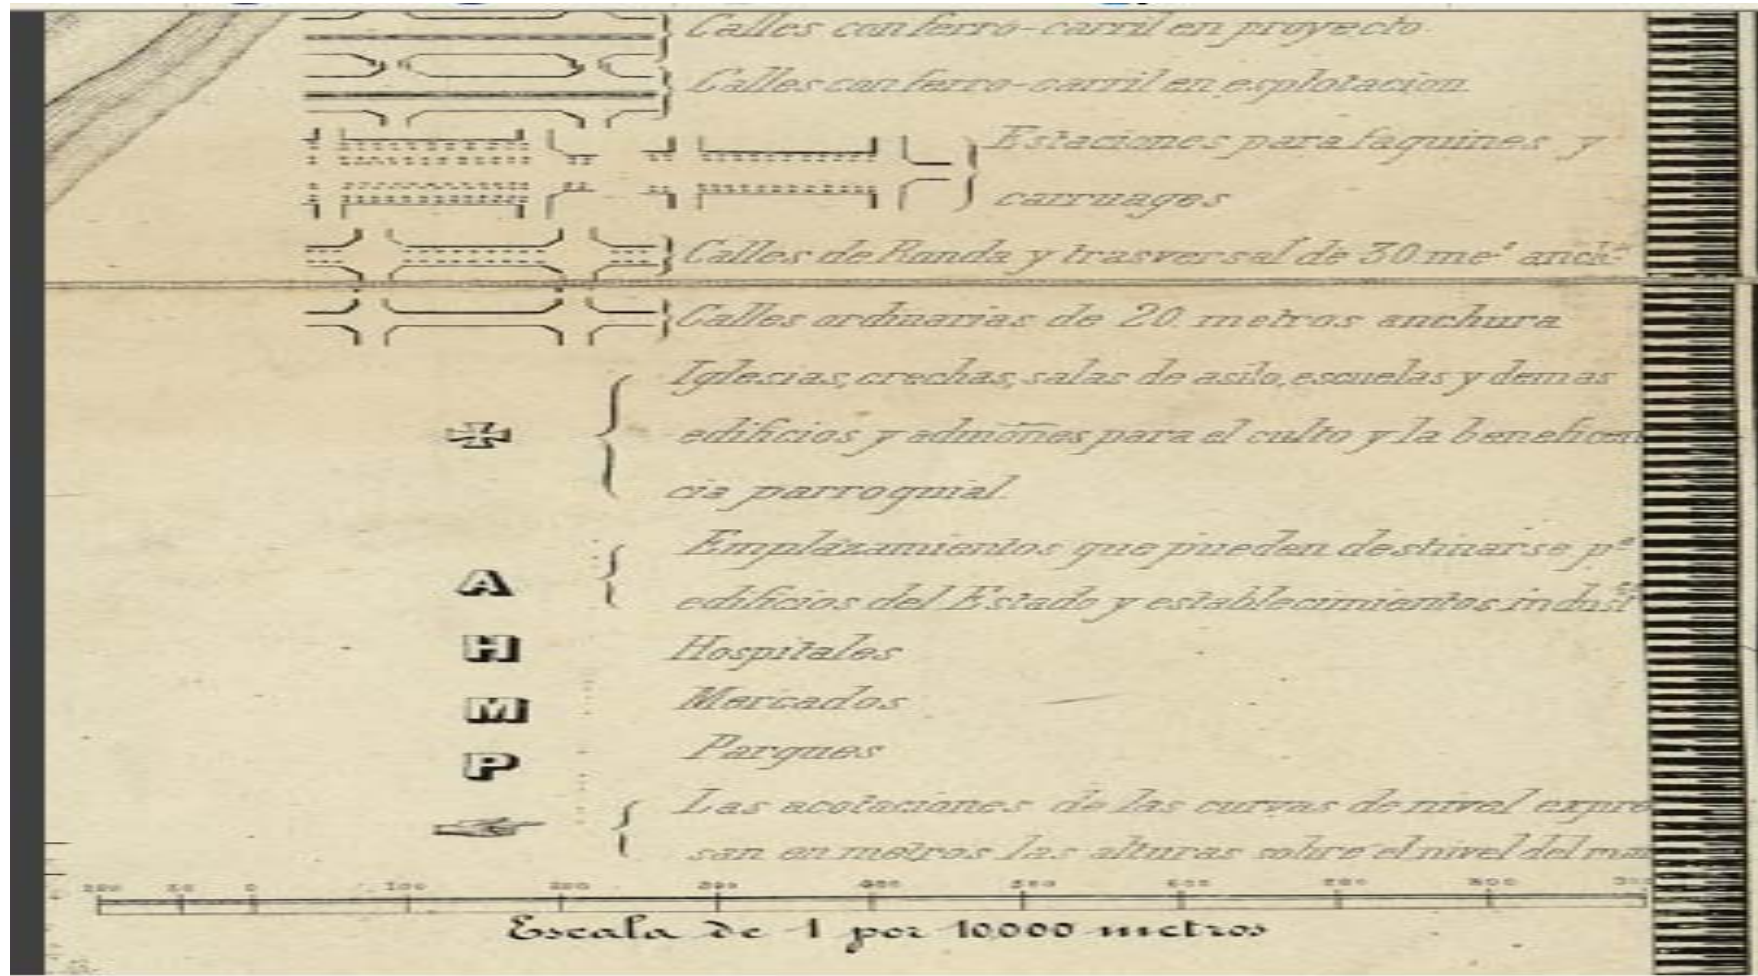 Calles con ferro-carril en proyecto
Calles con ferro-carril en esplotacion.
Estaciones para faquines y
carruages
Calles de Ronda y trasversal de 30 me.ˢ anch.ᵃ
Calles ordinarias de 20 metros anchura
Iglesias, crechas, salas de asilo, escuelas y demas
edificios y admones para el culto y la beneficen
cia parroquial.
Emplazamientos que pueden destinarse p.ᵃ
A
edificios del Estado y establecimientos indust.ˢ
H Hospitales
M Mercados
P Parques
Las acotaciones de las curvas de nivel expre
san en metros las alturas sobre el nivel del mar
100 50 0 100 200 300 400 500 600 700 800
Escala de 1 por 10.000 metros